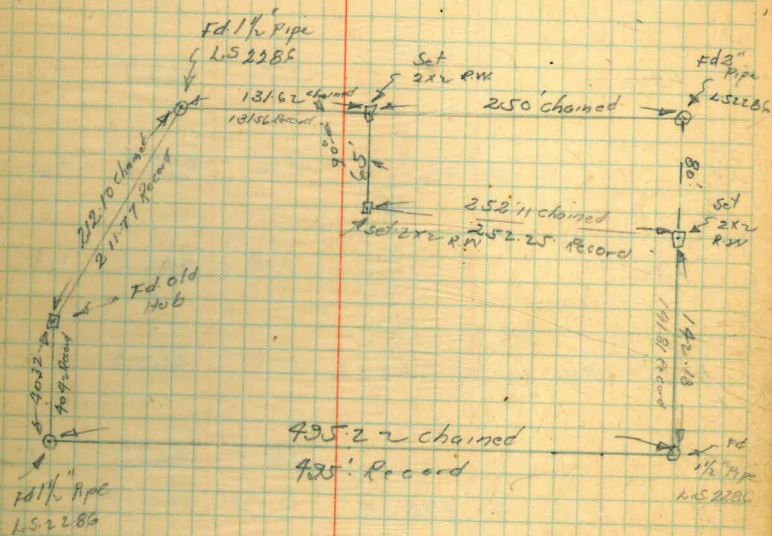 Fd. 1½" Pipe
L.S 2286
Set
2x2 R.W.
Fd 2"
Pipe
L.S 2286
131.62 chained
131.56 Record
250' chained
90°
65'
80'
212.10 chained
211.77 Record
252.11 chained
252.25 Record
Set 2x2
R.W.
Set
2x2
R.W
Fd. Old
Hub
40.32
40.42 Record
142.18
141.81 Record
495.22 chained
495' Record
Fd 1½" Pipe
L.S. 2286
Fd
1½" Pipe
L.S. 2286